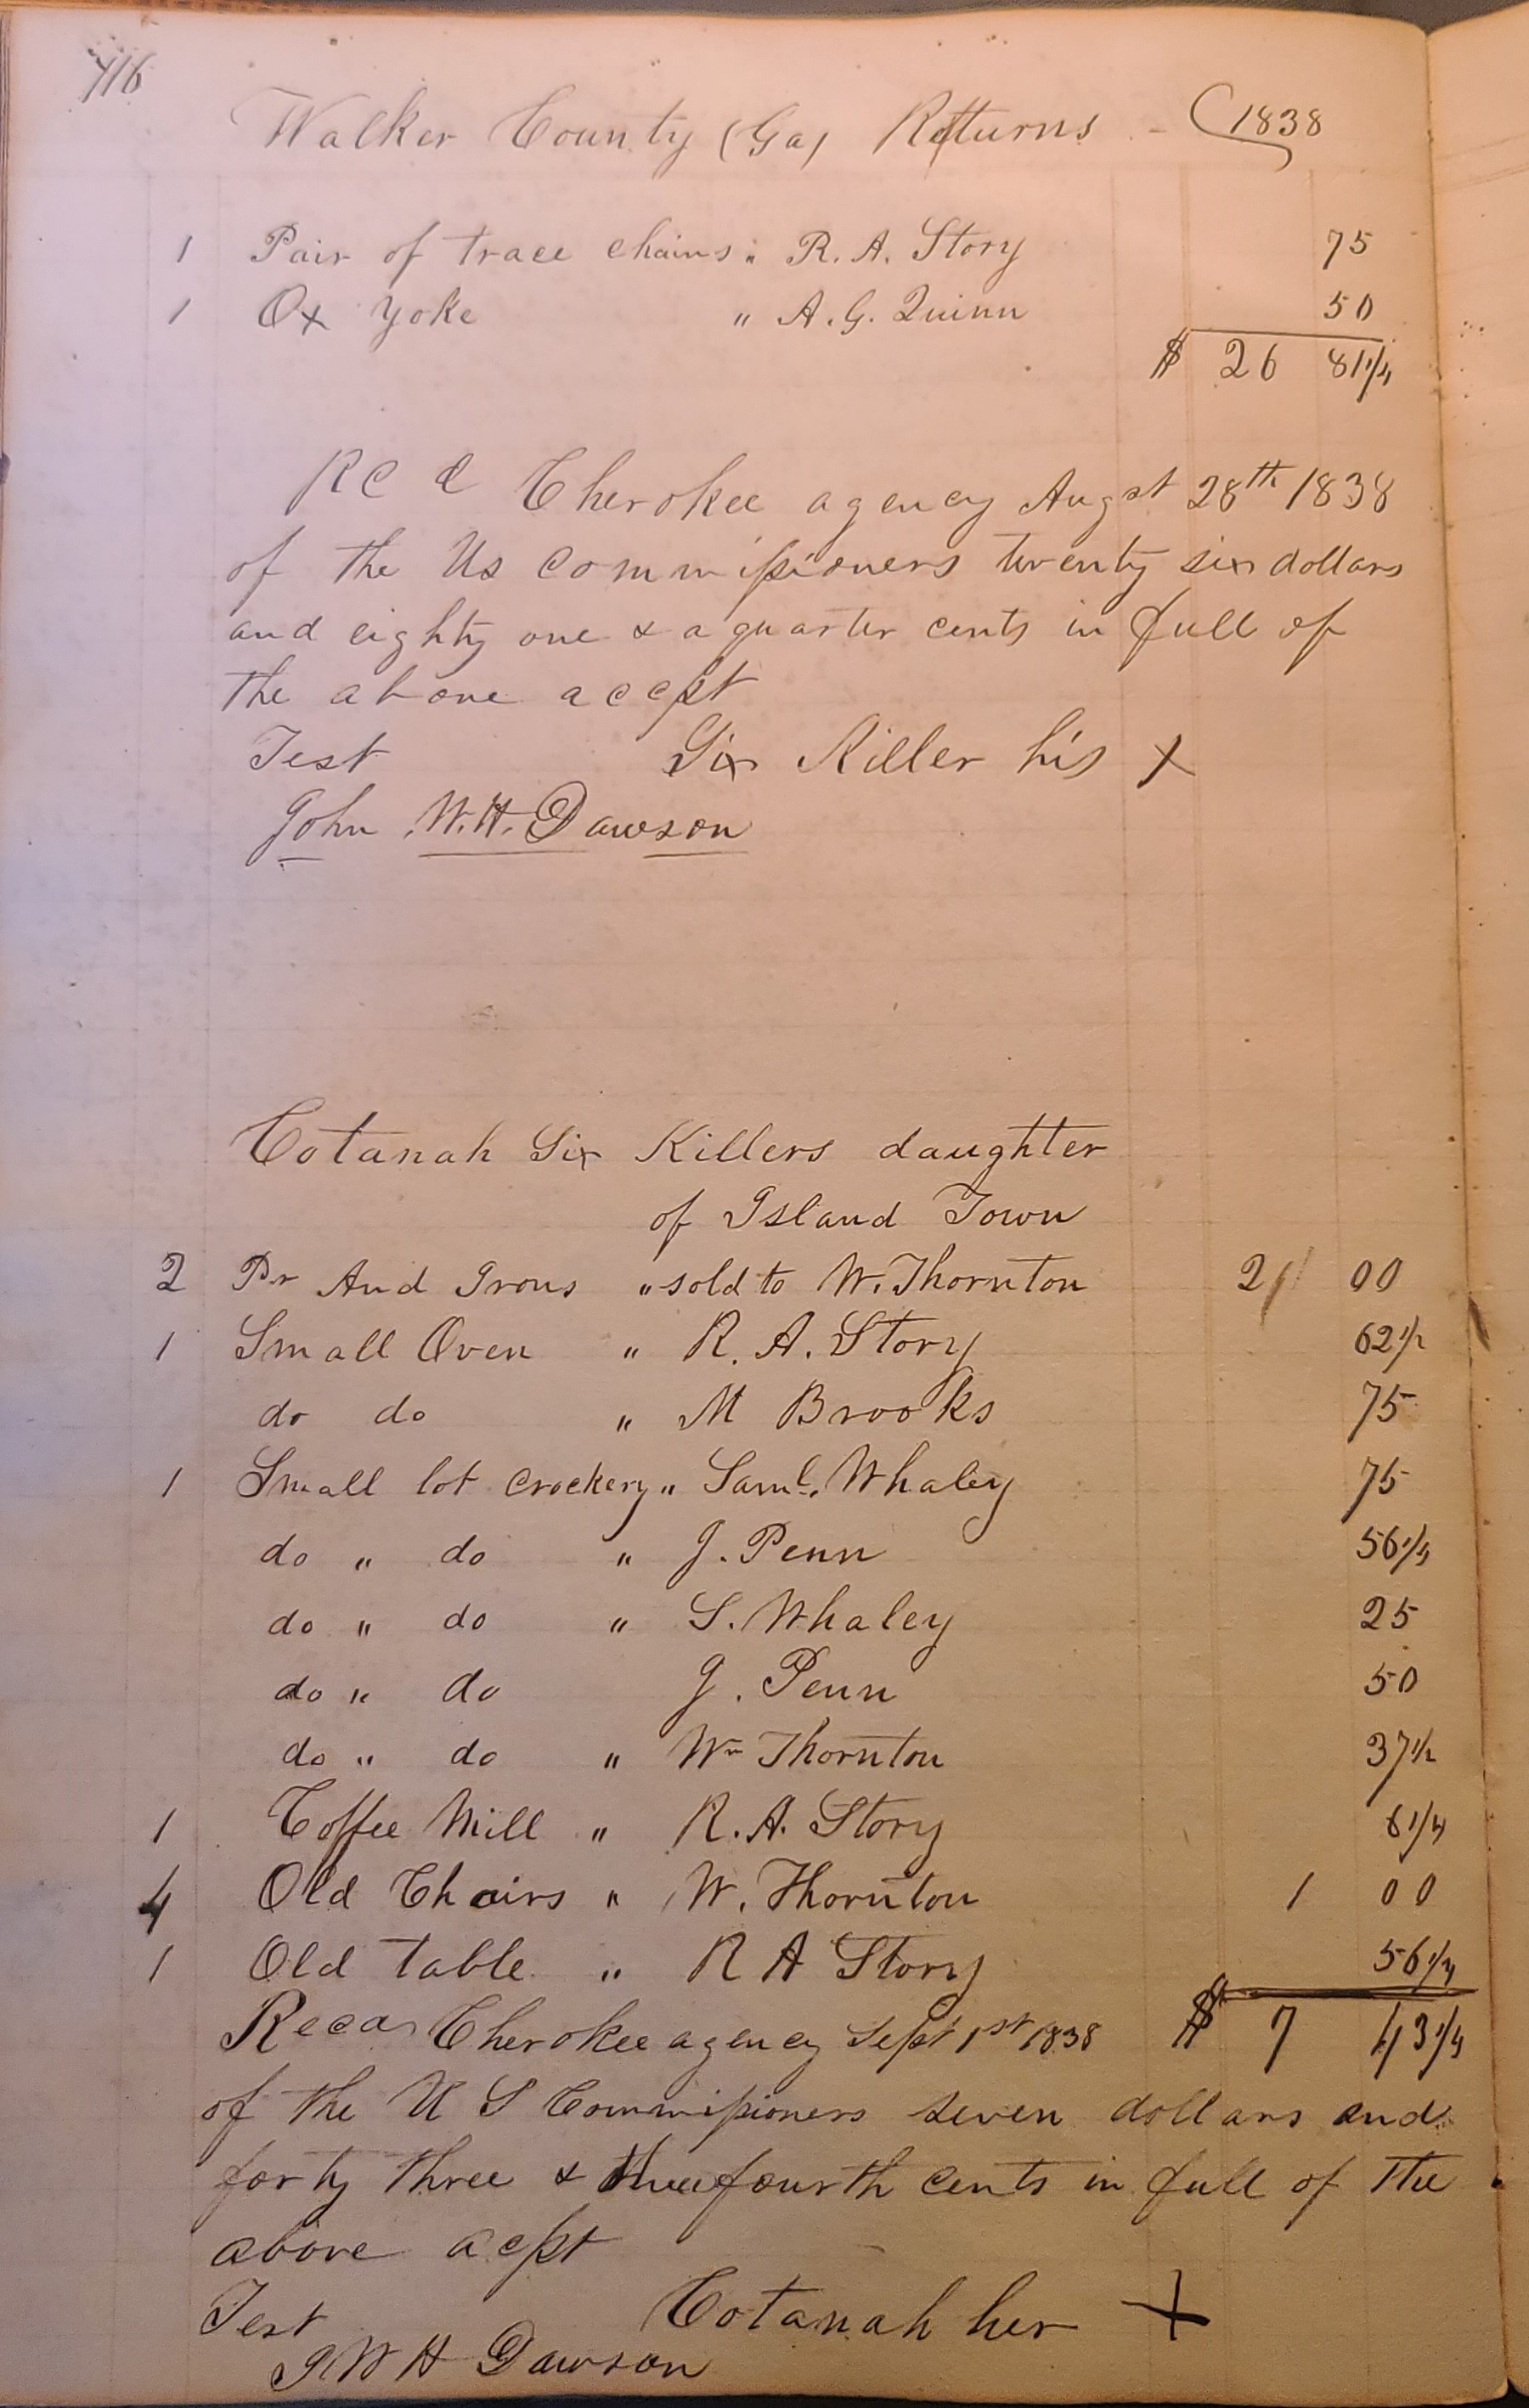 416
Walker County (Ga) Retturns - 1838
1 Pair of trace chains " R. A. Story 75
1 Ox Yoke " A. G. Quinn 50
$ 26 81 1/4
Rcd Cherokee agency Augst 28th 1838
of the Us Commissioners twenty six dollars
and eighty one & a quarter cents in full of
the above accpt
Test Six Killer his X
John W. H. Dawson
Cotanah Six Killers daughter
of Island Town
2 Pr And Irons " sold to W. Thornton 2 00
1 Small Oven " R. A. Story 62 1/2
do do " M Brooks 75
1 Small lot Crockery " Saml. Whaley 75
do " do " J. Penn 56 1/4
do " do " S. Whaley 25
do " do J. Penn 50
do " do " Wm Thornton 37 1/2
1 Coffee Mill " R. A. Story 6 1/4
4 Old Chairs " W. Thornton 1 00
1 Old table " R A Story 56 1/4
Recd Cherokee agency Sept 1st 1838 $ 7 43 1/4
of the U S Commissioners seven dollars and
forty three & three fourth cents in full of the
above acpt
Test Cotanah her X
J W H Dawson